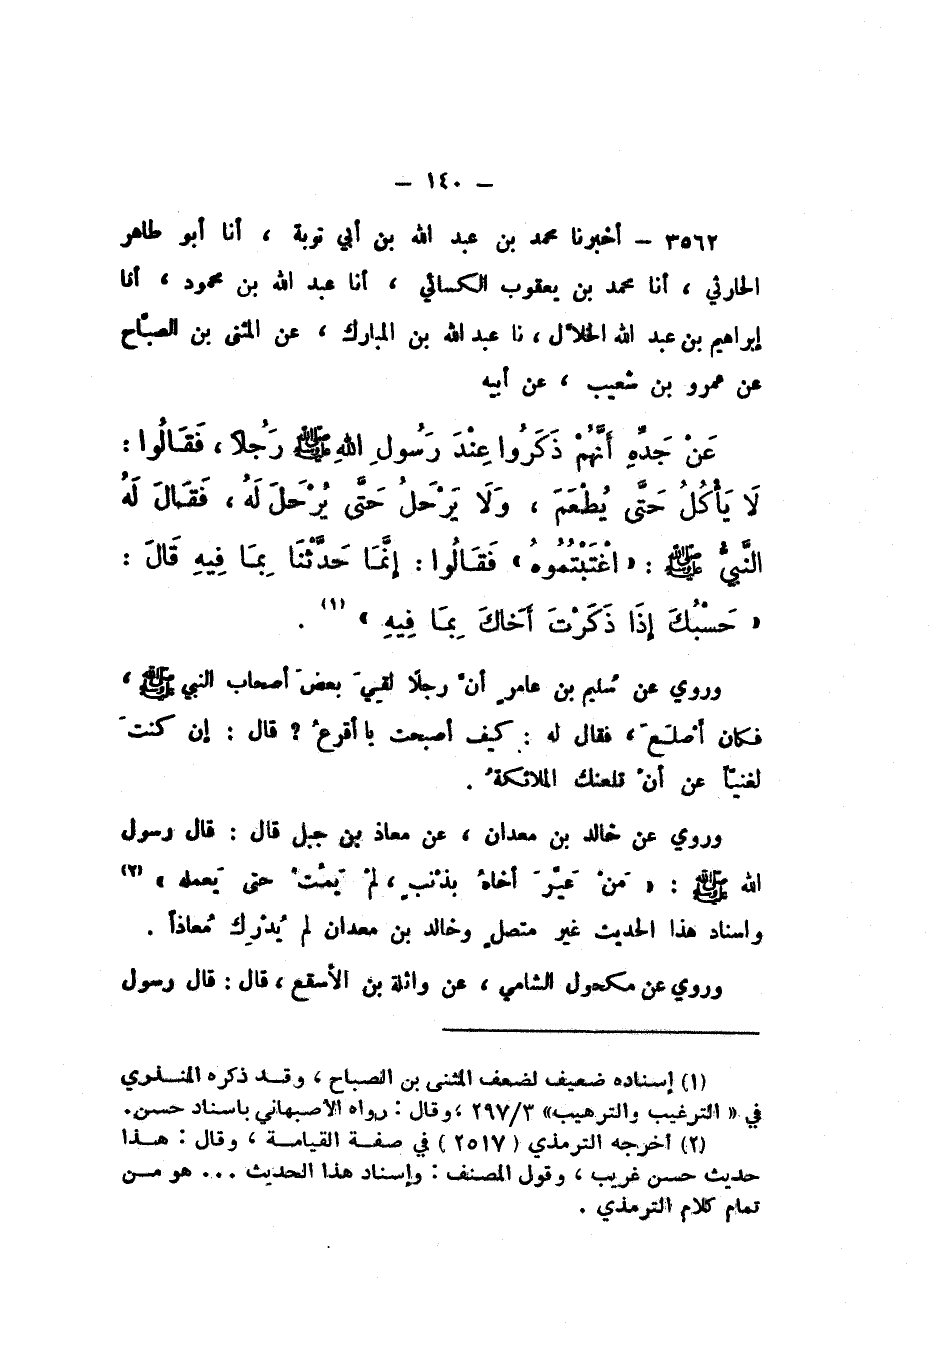 – ١٤٠ –
٣٥٦٢ – أخبرنا محمد بن عبد الله بن أبي توبة ، أنا أبو طاهر
الحارثي ، أنا محمد بن يعقوب الكسائي ، أنا عبد الله بن محمود ، أنا
إبراهيم بن عبد الله الخلاّل ، نا عبد الله بن المبارك ، عن المثنى بن الصبّاح
عن عمرو بن شعيب ، عن أبيه
عَنْ جَدِّهِ أَنَّهُمْ ذَكَرُوا عِنْدَ رَسُولِ اللهِ ﷺ رَجُلاً ، فَقَالُوا :
لَا يَأْكُلُ حَتَّى يُطْعَمَ ، وَلَا يَرْحَلُ حَتَّى يُرْحَلَ لَهُ ، فَقَالَ لَهُ
النَّبِيُّ ﷺ : « اغْتَبْتُمُوهُ » فَقَالُوا : إِنَّمَا حَدَّثْنَا بِمَا فِيهِ قَالَ :
« حَسْبُكَ إِذَا ذَكَرْتَ أَخَاكَ بِمَا فِيهِ » (١) .
وروي عن سُليم بن عامرٍ أنْ رجلًا لقيَ بعضَ أصحاب النبي ﷺ ،
فكان أصلَعَ ، فقال له : كيف أصبحت يا أقرعُ ? قال : إن كنتَ
لغنيّاً عن أنْ تلعنك الملائكةُ .
وروي عن خالد بن معدان ، عن معاذ بن جبل قال : قال رسول
الله ﷺ : « مَنْ عَيَّرَ أخاهُ بذنْبٍ ، لمْ يَمُتْ حتى يَعمله » (٢)
واسناد هذا الحديث غير متصلٍ وخالد بن معدان لم يُدْرِك مُعاذاً .
وروي عن مكحول الشامي ، عن واثلة بن الأسقع ، قال : قال رسول
(١) إسناده ضعيف لضعف المثنى بن الصباح ، وقد ذكره المنذري
في « الترغيب والترهيب» ٢٩٧/٣ ، وقال : رواه الأصبهاني باسناد حسن.
(٢) أخرجه الترمذي ( ٢٥١٧ ) في صفة القيامة ، وقال : هذا
حديث حسن غريب ، وقول المصنف : وإسناد هذا الحديث ... هو من
تمام كلام الترمذي .